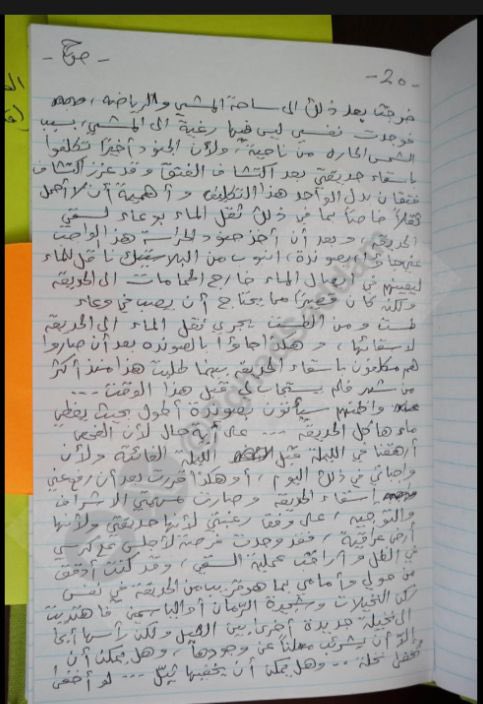 - ٢٥ -
خرجنا بعد ذلك الى ساحة المشي والرياضة،
فوجدت نفسي ليس فيها رغبة الى المشي، بسبب
الشمس الحارة من ناحية، ولأن الجنود أخيرًا تكلفوا
باسقاء حديقتي بعد اكتشاف الفتق وقد عزز اكتشاف
فتقان بدل الواحد هذا التكليف وأهمية أن لا أحمل
ثقلاً خاصاً بما في ذلك ثقل الماء بوعاء لسقي
الحديقة، وبعد أن أخذ جنود الحراسة هذا الواجب
عني جاؤا بصوندة، انبوب من البلاستيك ناقل للماء
ليعينهم في ايصال الماء خارج الحمامات الى الحديقة
ولكنه كان قصيرًا مما يحتاج أن يصب في وعاء
طست ومن الطست يجري نقل الماء الى الحديقة
لاسقائها، وهكذا جاؤا بالصوندة بعد أن صاروا
هم مكلفون باسقاء الحديقة بينما طلبت هذا منذ أكثر
من شهر فلم يستجاب لي قبل هذا الوقت ...
واظنهم سيأتون بصوندة أطول بحيث يغطي
ماءها كل الحديقة ... على أية حال لأن الفحص
أرهقنا في الليلة قبل الليلة الفائتة ولأن
واجباتي في ذلك اليوم، أو هكذا قررت بعد أن رفع عني
استقاء الحديقة وصارت مهمتي الاشراف
والتوجيه، على وفق رغبتي لأنها حديقتي ولأنها
أرض عراقية، فقد وجدت فرصة لأجلس على كرسي
في الظل وأراقب عملية السقي، وقد كنت أدقق
من حولي وأمامي بما هو قريب من الحديقة في نفس
ركن النخيلات وشجيرة الرمان أو الياسمين فاهتديت
الى نخيلة جديدة أخرى بين الثيل ولكن رأسها أبى
إلا أن يشرئب معلناً عن وجودها، وهل يمكن أن
تخفى نخلة ... وهل يمكن أن يخفيها ثيل ... لو أخفى